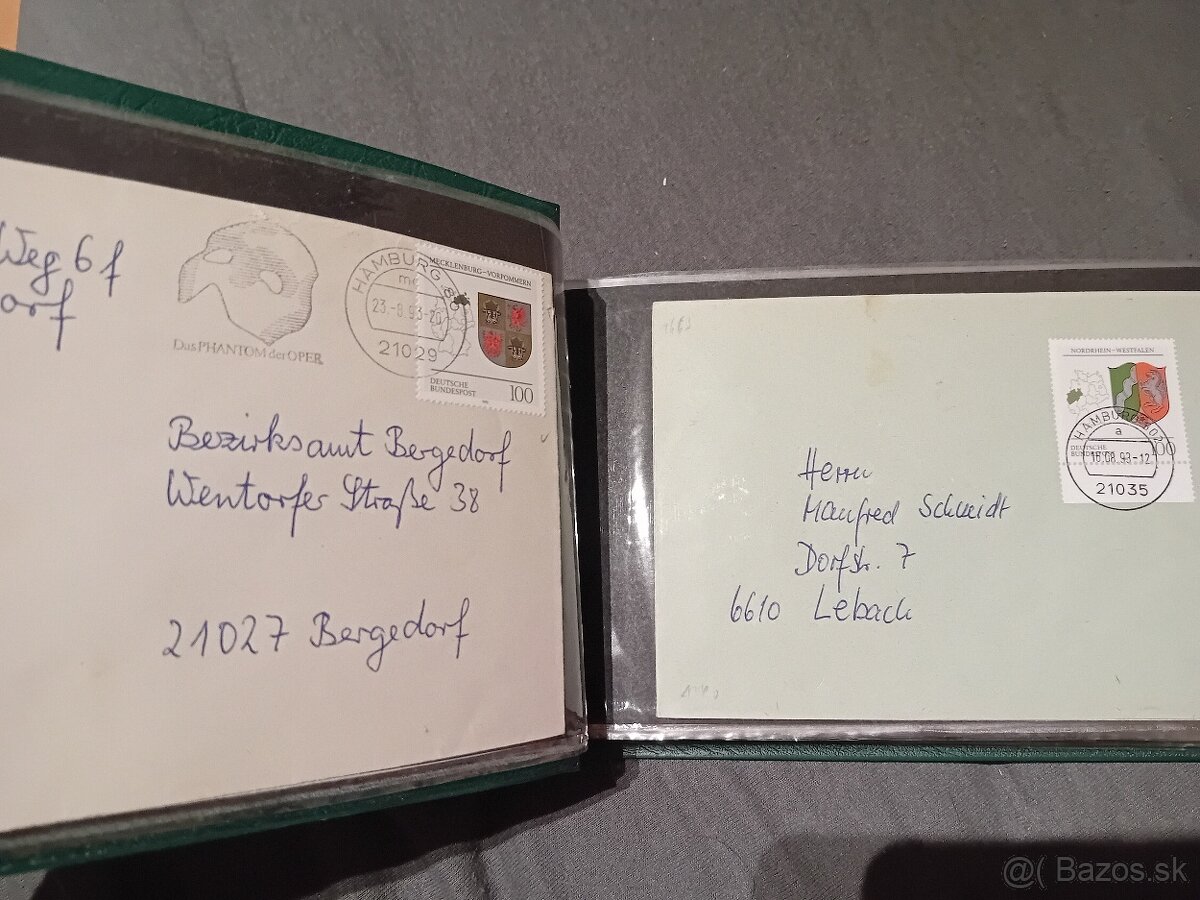 Weg 6 f
orf
Das PHANTOM der OPER
HAMBURG 80
mc
23.-8.93-20
21029
MECKLENBURG-VORPOMMERN
DEUTSCHE
BUNDESPOST
100
Bezirksamt Bergedorf
Wentorfer Straße 38
21027 Bergedorf
NORDRHEIN-WESTFALEN
DEUTSCHE
BUNDESPOST
100
HAMBURG
a
16.08.93-12
21035
Herrn
Manfred Schmidt
Dorfstr. 7
6610 Lebach
@( Bazos.sk